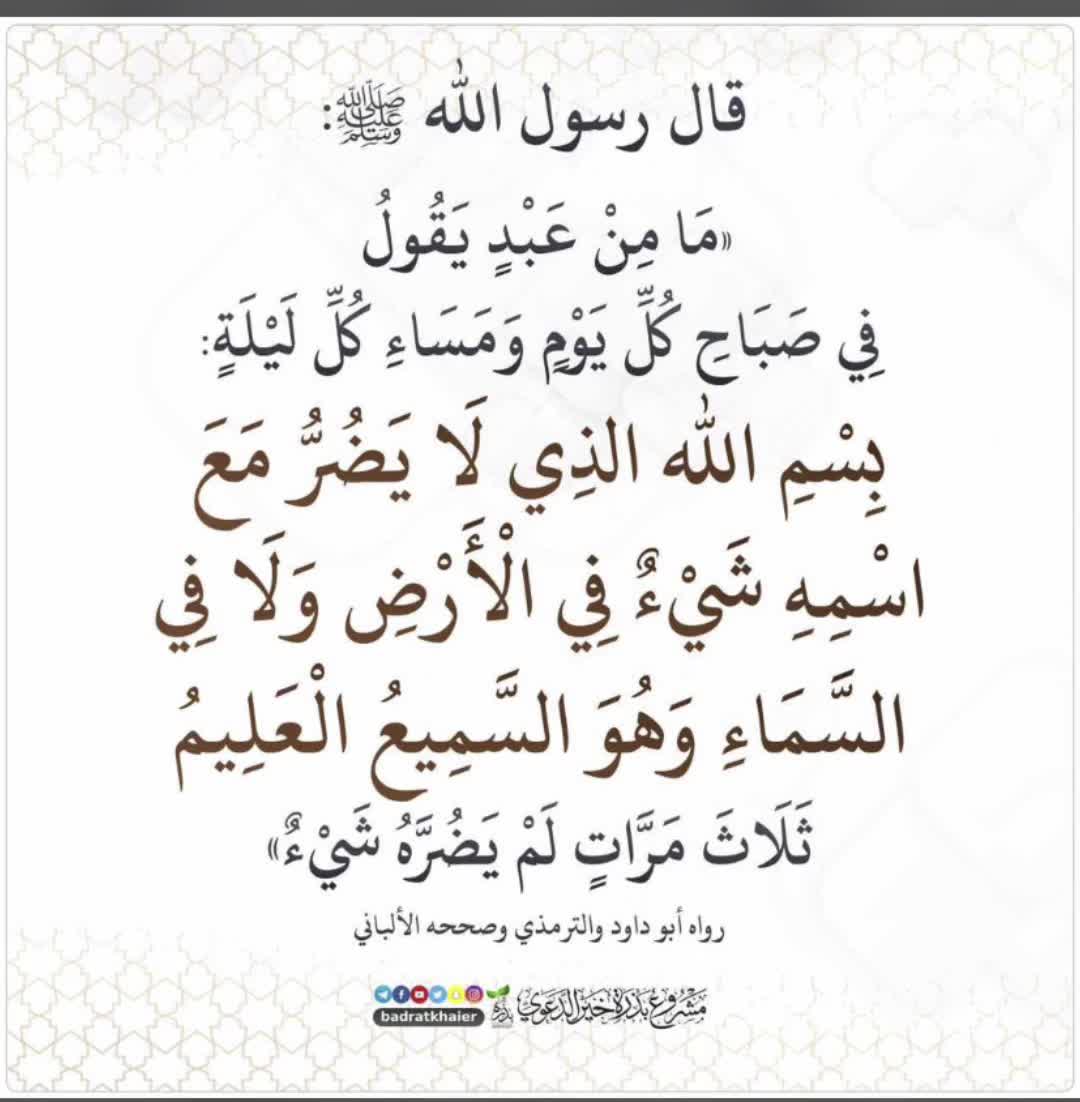 قال رسول الله ﷺ:
«مَا مِنْ عَبْدٍ يَقُولُ
فِي صَبَاحِ كُلِّ يَوْمٍ وَمَسَاءِ كُلِّ لَيْلَةٍ:
بِسْمِ الله الذِي لَا يَضُرُّ مَعَ
اسْمِهِ شَيْءٌ فِي الْأَرْضِ وَلَا فِي
السَّمَاءِ وَهُوَ السَّمِيعُ الْعَلِيمُ
ثَلَاثَ مَرَّاتٍ لَمْ يَضُرَّهُ شَيْءٌ»
رواه أبو داود والترمذي وصححه الألباني
مشروع بذرة خير الدعوي بذرة
badratkhaier